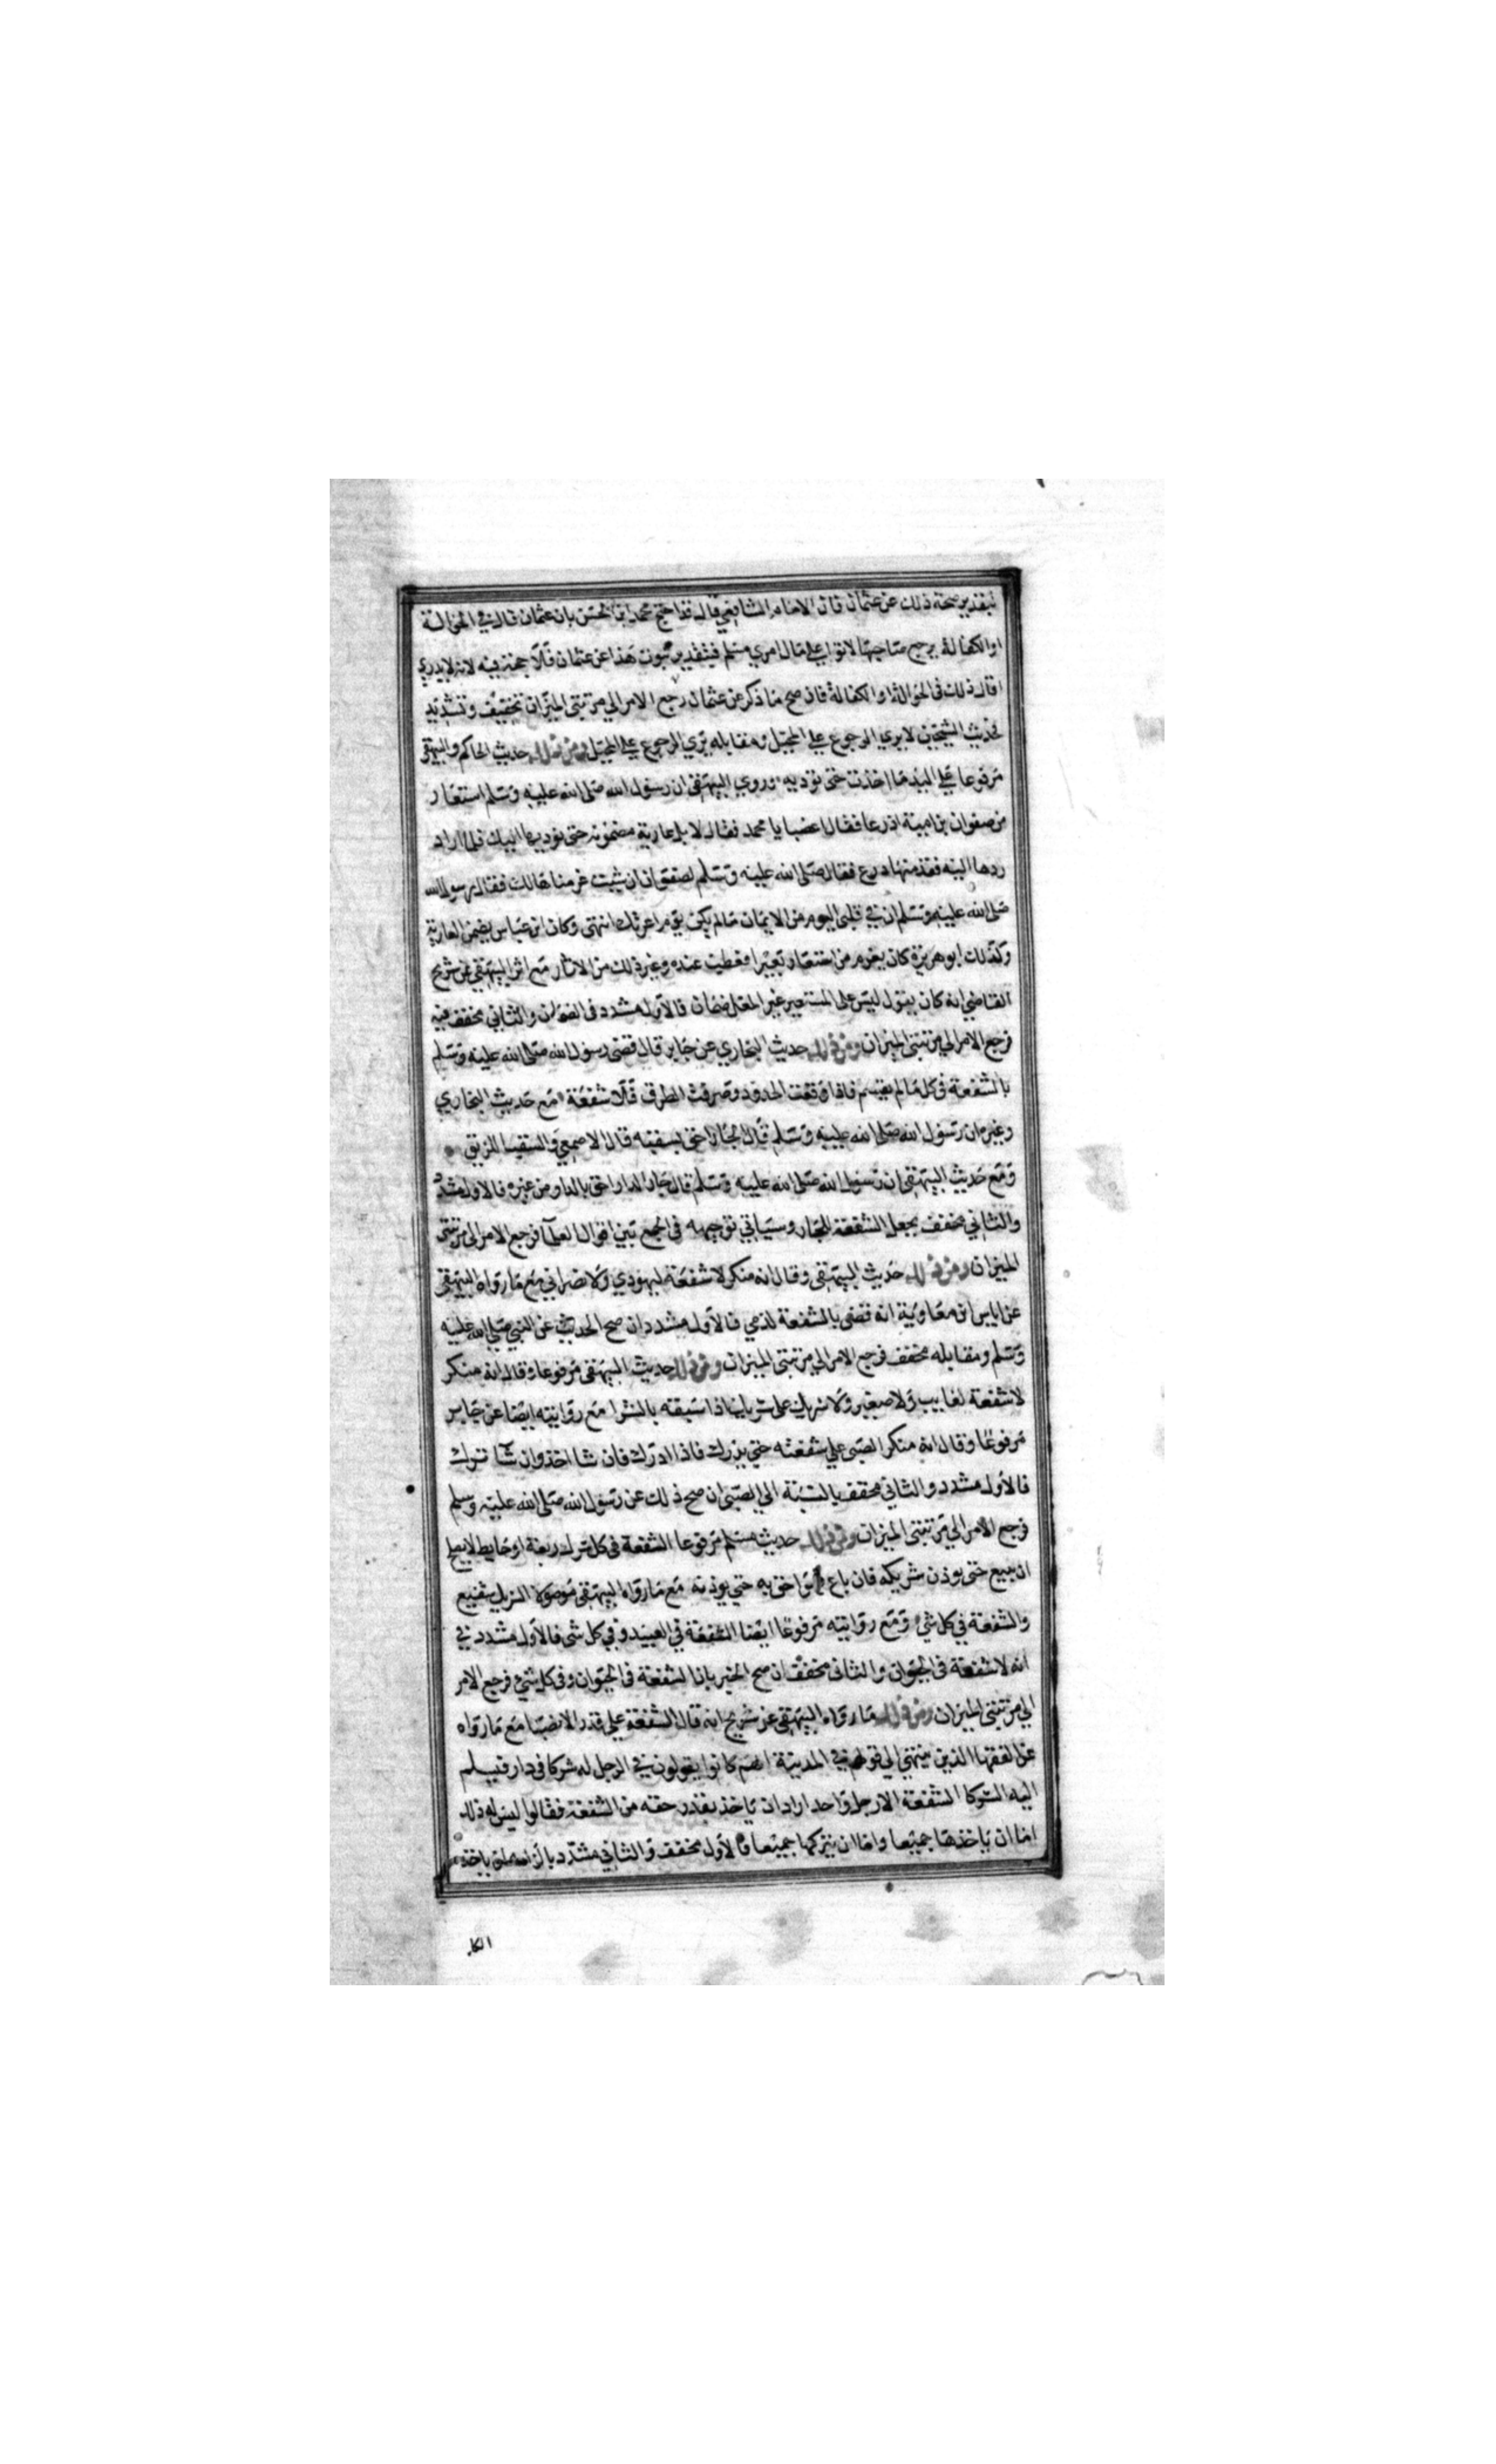 بتقدير صحة ذلك عن عثمان قال الامام الشافعي قال وقد احتج محمد بن الحسن بان عثمان قال في الحوالة
او الكفالة يرجع صاحبها لا توا على مال امرئ مسلم فبتقدير ثبوت هذا عن عثمان فلا حجة فيه لانه لا يدري
اقال ذلك في الحوالة او الكفالة فان صح ما ذكر عن عثمان رجع الامر الي مرتبتي الميزان تخفيف وتشديد
فحديث الشيخين لا يري الرجوع علي المحيل ومقابله يري الرجوع علي المحيل ومن ذلك حديث الحاكم والبيهقي
مرفوعا علي اليد ما اخذت حتى تؤديه وروي البيهقي ان رسول الله صلى الله عليه وسلم استعار
من صفوان بن امية اذرعا فقال اغصبا يا محمد فقال لا بل عارية مضمونة حتى نوديها اليك فلما اراد
ردها اليه فقد منها درع فقال صلى الله عليه وسلم لصفوان ان شيت غرمناها لك فقال يا رسول الله
صلى الله عليه وسلم ان في قلبى اليوم من الايمان مالم يكن يوم اعرتك انتهى وكان ابن عباس يضمن العارية
وكذلك ابو هريرة كان يغرم من استعار بعيرا فعطب عنده وغير ذلك من الاثار مع اثر البيهقي عن شريح
القاضي انه كان يقول ليس على المستعير غير المغل ضمان فالاول مشدد في الضمان والثاني مخفف فيه
فرجع الامر الي مرتبتى الميزان ومن ذلك حديث البخاري عن جابر قال قضى رسول الله صلى الله عليه وسلم
بالشفعة في كل مالم يقسم فاذا وقعت الحدود وصرفت الطرق فلا شفعة مع حديث البخاري
وغيره ان رسول الله صلى الله عليه وسلم قال الجار احق بسقبه قال الاصمعي والسقب اللزيق
ومع حديث البيهقى ان رسول الله صلى الله عليه وسلم قال جار الدار احق بالدار من غيره فالاول مشدد
والثاني مخفف بجعل الشفعة للجار وسياتي توجيهه في الجمع بين اقوال العلماء فرجع الامر الى مرتبتى
الميزان ومن ذلك حديث البيهقى وقال انه منكر لا شفعة ليهودي ولا نصراني مع ما رواه البيهقي
عن اياس بن معاوية انه قضى بالشفعة لذمي فالاول مشدد ان صح الحديث عن النبي صلى الله عليه
وسلم ومقابله مخفف فرجع الامر الي مرتبتى الميزان ومن ذلك حديث البيهقى مرفوعا وقال انه منكر
لا شفعة لغايب ولا صغير ولا شريك على شريك اذا سبقه بالشرا مع روايته ايضا عن جابر
مرفوعا وقال انه منكر الصبى علي شفعته حتي يدرك فاذا ادرك فان شا اخذ وان شا ترك
فالاول مشدد والثاني مخفف بالنسبة الي الصبى ان صح ذلك عن رسول الله صلى الله عليه وسلم
فرجع الامر الي مرتبتى الميزان ومن ذلك حديث مسلم مرفوعا الشفعة في كل شرك ربعة او حايط لا يصلح
ان يبيع حتى يوذن شريكه فان باع فهو احق به حتي يوذنه مع ما رواه البيهقى موصولا الشريك شفيع
والشفعة في كل شيء ومع روايته مرفوعا ايضا الشفعة في العبيد وفي كل شى فالاول مشدد في
انه لا شفعة في الحيوان والثانى مخفف ان صح الخبر بان الشفعة في الحيوان وفى كل شي فرجع الامر
الي مرتبتى الميزان ومن ذلك ما رواه البيهقى عن شريح انه قال الشفعة علي قدر الانصبا مع ما رواه
عن الفقها الذين ينتهي الي قولهم في المدينة انهم كانوا يقولون في الرجل له شركا في دار فيسلم
اليه الشركا الشفعة الا رجل واحد اراد ان ياخذ بقدر حقه من الشفعة فقالوا ليس له ذلك
اما ان ياخذها جميعا واما ان يتركها جميعا فالاول مخفف والثاني مشدد